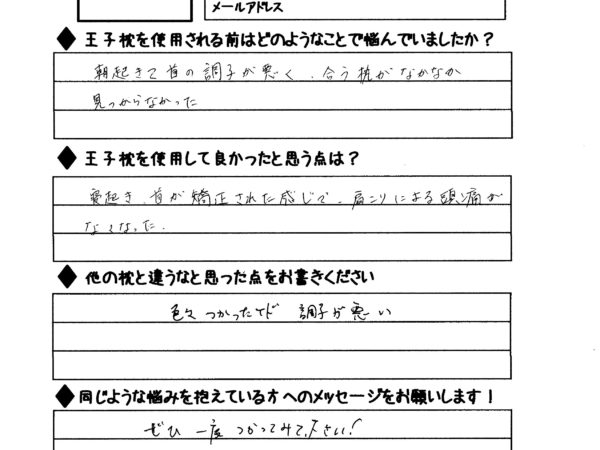 メールアドレス
◆王子枕を使用される前はどのようなことで悩んでいましたか？
朝起きて首の調子が悪く、合う枕がなかなか
見つからなかった
◆王子枕を使用して良かったと思う点は？
寝起き、首が矯正された感じで、肩こりによる頭痛が
なくなった.
◆他の枕と違うなと思った点をお書きください
色々つかったけど 調子が悪い
◆同じような悩みを抱えている方へのメッセージをお願いします！
ぜひ 一度 つかってみて下さい！